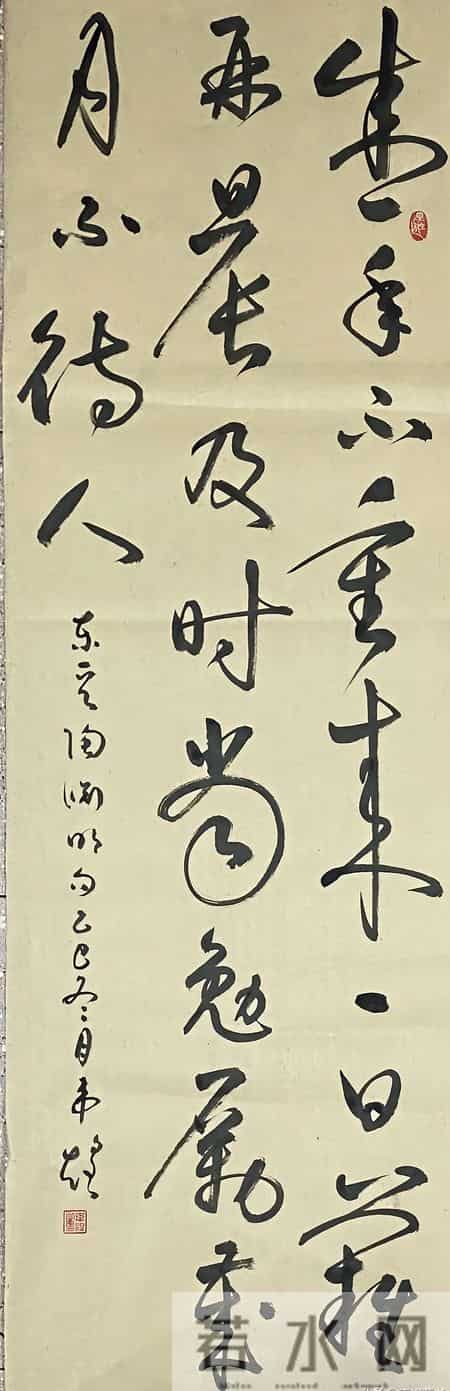 盛年不重来一日难
再晨及时当勉励岁
月不待人
东晋陶渊明句乙巳冬月
若水网